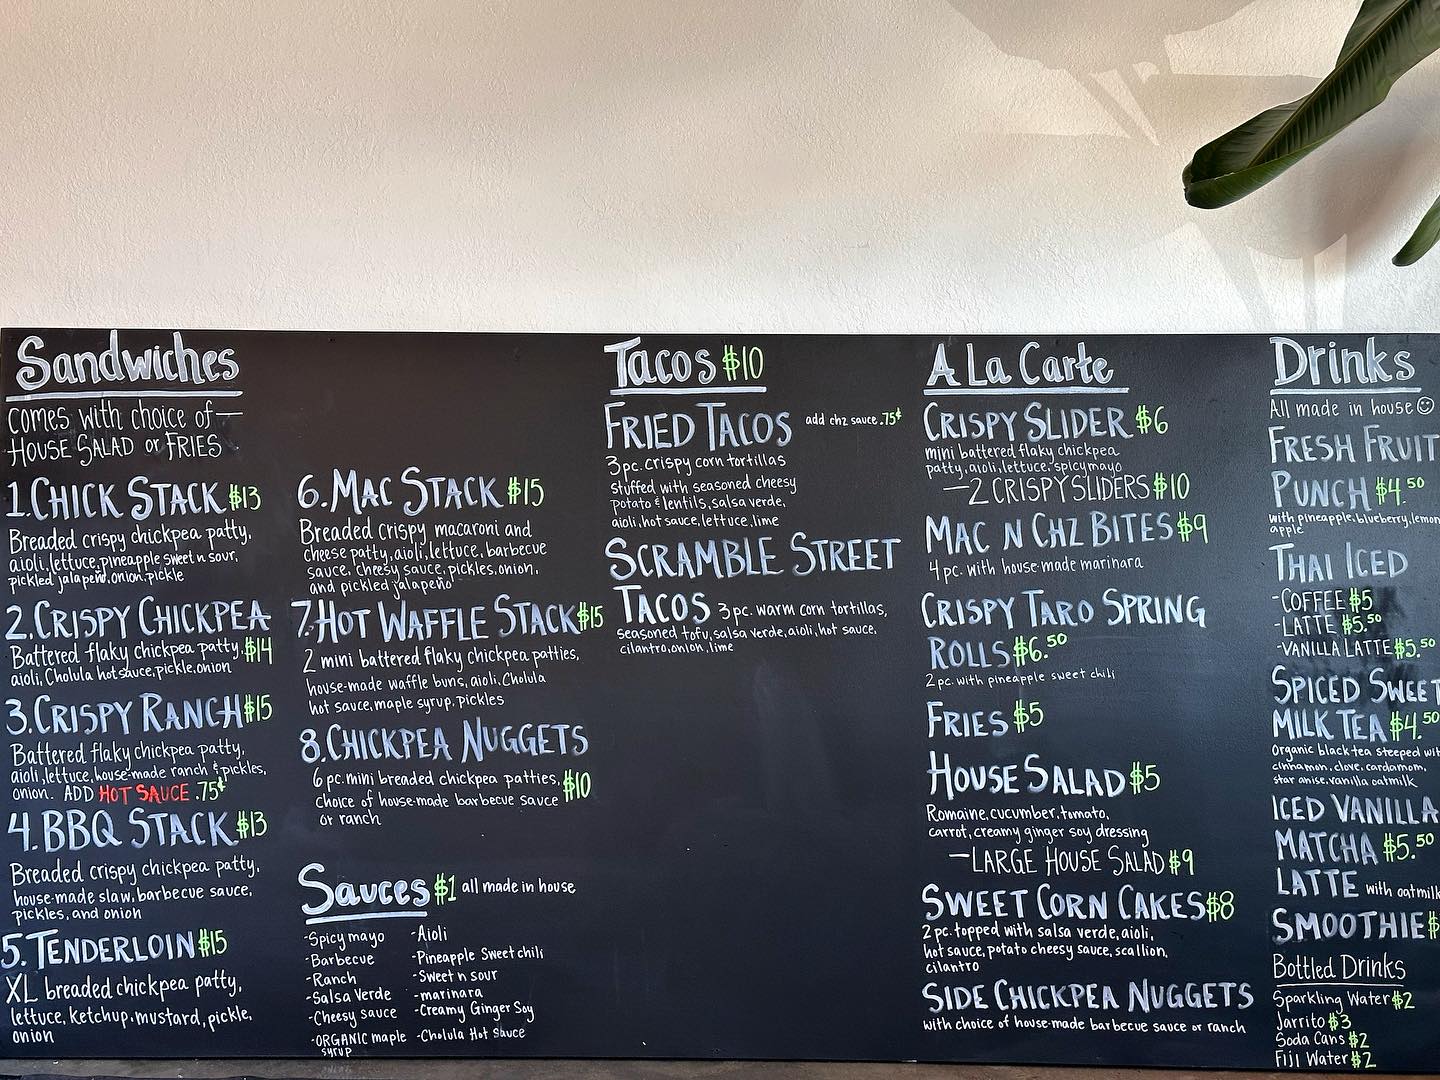 Sandwiches
comes with choice of—
HOUSE SALAD or FRIES
1.CHICK STACK $13
Breaded crispy chickpea patty,
aioli, lettuce, pineapple sweet n sour,
pickled jalapeño, onion, pickle
2.CRISPY CHICKPEA
Battered flaky chickpea patty, $14
aioli, Cholula hot sauce, pickle, onion
3.CRISPY RANCH $15
Battered flaky chickpea patty,
aioli, lettuce, house-made ranch & pickles,
onion. ADD HOT SAUCE .75¢
4.BBQ STACK $13
Breaded crispy chickpea patty,
house-made slaw, barbecue sauce,
pickles, and onion
5.TENDERLOIN $15
XL breaded chickpea patty,
lettuce, ketchup, mustard, pickle,
onion
6.MAC STACK $15
Breaded crispy macaroni and
cheese patty, aioli, lettuce, barbecue
sauce, cheesy sauce, pickles, onion,
and pickled jalapeño
7.HOT WAFFLE STACK $15
2 mini battered flaky chickpea patties,
house-made waffle buns, aioli, Cholula
hot sauce, maple syrup, pickles
8.CHICKPEA NUGGETS
6 pc. mini breaded chickpea patties, $10
choice of house-made barbecue sauce
or ranch
Sauces $1 all made in house
-Spicy mayo
-Barbecue
-Ranch
-Salsa Verde
-Cheesy sauce
-ORGANIC maple
syrup
-Aioli
-Pineapple Sweet chili
-Sweet n sour
-marinara
-Creamy Ginger Soy
-Cholula Hot Sauce
Tacos $10
FRIED TACOS add chz sauce .75¢
3 pc. crispy corn tortillas
stuffed with seasoned cheesy
potato & lentils, salsa verde,
aioli, hot sauce, lettuce, lime
SCRAMBLE STREET
TACOS 3 pc. warm corn tortillas,
seasoned tofu, salsa verde, aioli, hot sauce,
cilantro, onion, lime
A La Carte
CRISPY SLIDER $6
mini battered flaky chickpea
patty, aioli, lettuce, spicy mayo
—2 CRISPY SLIDERS $10
MAC N CHZ BITES $9
4 pc. with house-made marinara
CRISPY TARO SPRING
ROLLS $6.50
2 pc. with pineapple sweet chili
FRIES $5
HOUSE SALAD $5
Romaine, cucumber, tomato,
carrot, creamy ginger soy dressing
—LARGE HOUSE SALAD $9
SWEET CORN CAKES $8
2 pc. topped with salsa verde, aioli,
hot sauce, potato cheesy sauce, scallion,
cilantro
SIDE CHICKPEA NUGGETS
with choice of house-made barbecue sauce or ranch
Drinks
All made in house ☺
FRESH FRUIT
PUNCH $4.50
with pineapple, blueberry, lemon
apple
THAI ICED
-COFFEE $5
-LATTE $5.50
-VANILLA LATTE $5.50
SPICED SWEET
MILK TEA $4.50
Organic black tea steeped with
cinnamon, clove, cardamom,
star anise, vanilla oatmilk
ICED VANILLA
MATCHA $5.50
LATTE with oatmilk
SMOOTHIE $
Bottled Drinks
Sparkling Water $2
Jarrito $3
Soda Cans $2
Fiji Water $2